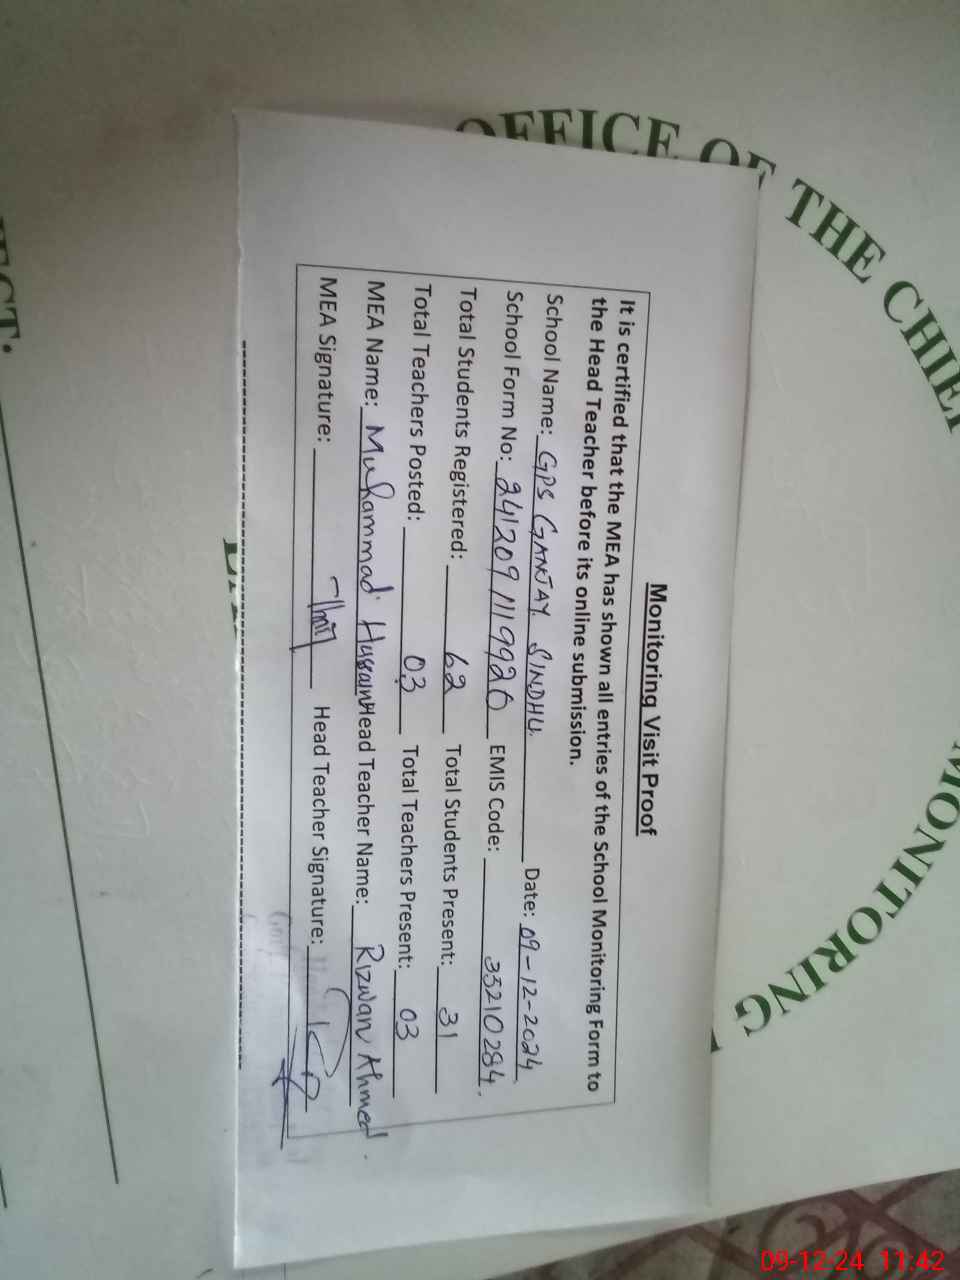 OFFICE OF THE CHIEF
MONITORING
Monitoring Visit Proof
It is certified that the MEA has shown all entries of the School Monitoring Form to
the Head Teacher before its online submission.
School Name: GPS GANJAY SINDHU Date: 09-12-2024
School Form No: 241209111992 EMIS Code: 33210284
Total Students Registered: 62 Total Students Present: 31
Total Teachers Posted: 03 Total Teachers Present: 03
MEA Name: Muhammad Hussain Head Teacher Name: Rizwan Ahmed
MEA Signature: Head Teacher Signature:
09-12-24 11:42